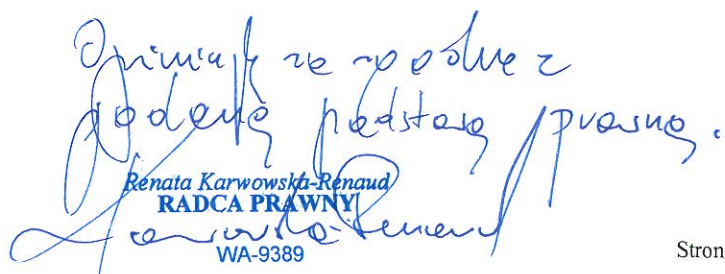 Opiniuję za zgodne z
podaną podstawą prawną.
Renata Karwowska-Renaud
RADCA PRAWNY
WA-9389
Stron